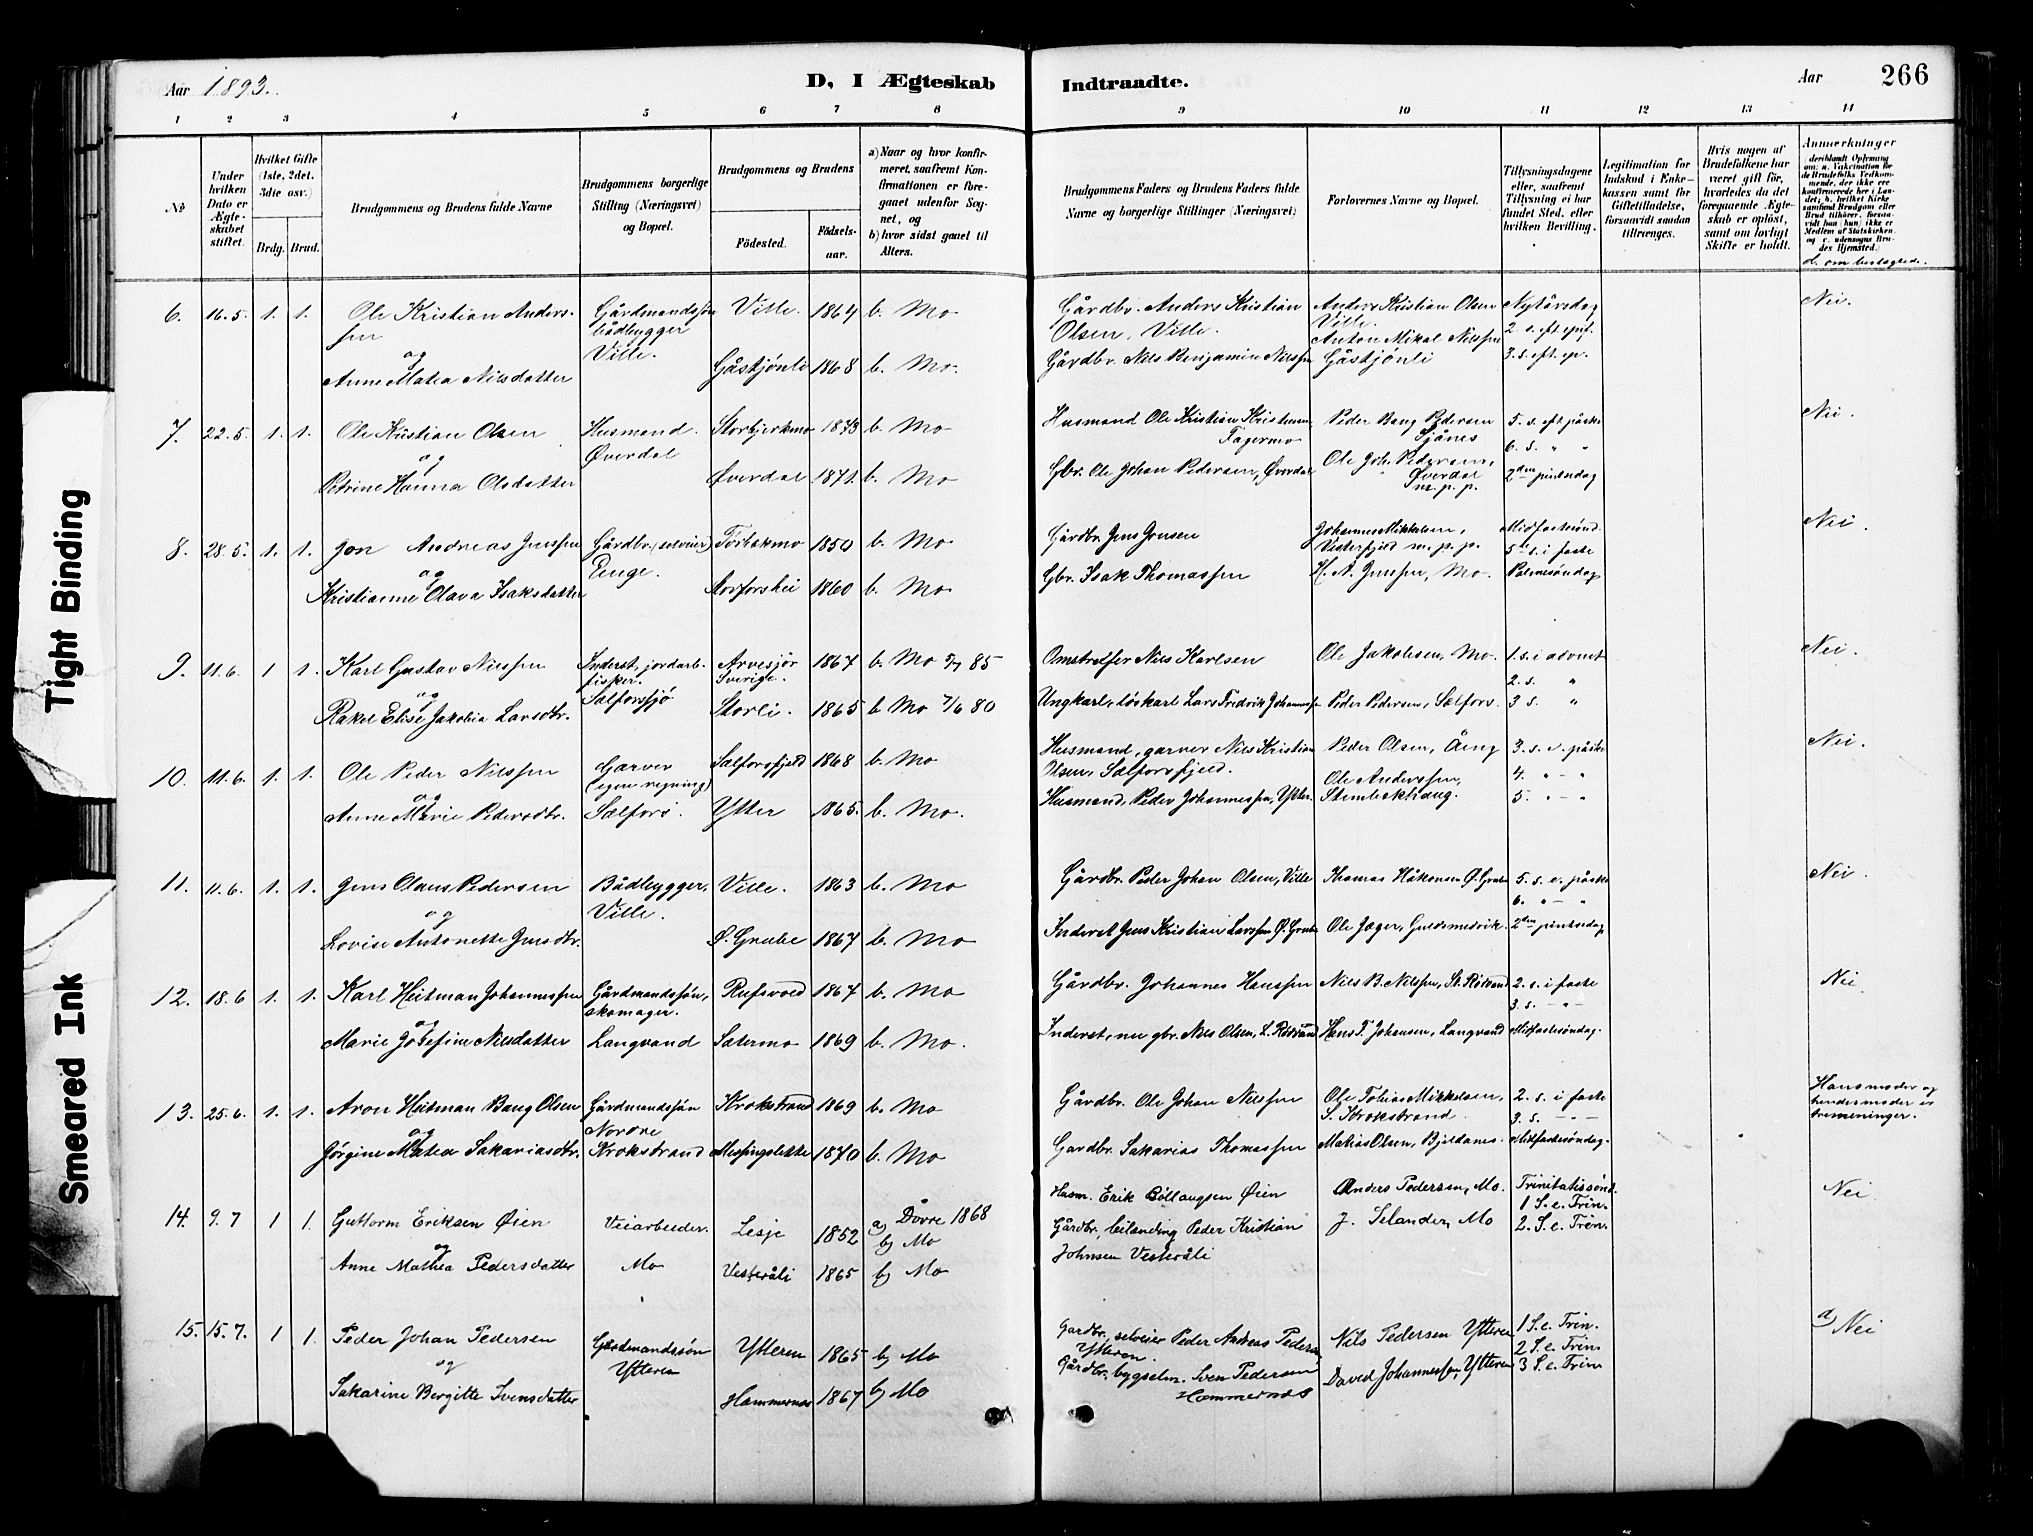 Aar 1893. D, I Ægteskab Indtraadte. Aar 266
1 2 3 4 5 6 7 8 9 10 11 12 13 14
No
Under hvilken Dato er Ægteskabet stiftet.
Hvilket Gifte (1ste, 2det, 3die osv.)
Brdg. Brud.
Brudgommens og Brudens fulde Navne
Brudgommens borgerlige Stilling (Næringsvei) og Bopæl.
Brudgommens og Brudens
Födested. Födselsaar.
a) Naar og hvor konfirmeret, saafremt Konfirmationen er foregaaet udenfor Sognet, og
b) hvor sidst gaaet til Alters.
Brudgommens Faders og Brudens Faders fulde Navne og borgerlige Stillinger (Næringsvei)
Forlovernes Navne og Bopæl.
Tillysningsdagene eller, saafremt Tillysning ei har fundet Sted, efter hvilken Bevilling.
Legitimation for Indskud i Enkekassen samt for Giftetilladelse, forsaavidt saadan tiltrænges.
Hvis nogen af Brudefolkene har været gift för, hvorledes da det foregaaende Ægteskab er oplöst, samt om lovligt Skifte er holdt.
Anmærkninger
d. om beslægtede.
6. 16.5. 1. 1. Ole Kristian Anders- Gårdmandssøn Ville. 1864 b. Mo Gårdbr. Anders Kristian Anders Kristian Olsen Nytårsdag Nei.
sen bådbygger Olsen, Ville. Ville. 2 s. eft. epif.
og Ville. Anton Mikal Nilssen
Anne Matea Nilsdatter Gåstjønli 1868 b. Mo. Gårdbr. Nils Benjamin Nilssen Gåstjønli 3. s. eft. ep.
7. 22.5. 1. 1. Ole Kristian Olsen Husmand. Storbjerkmo 1873 b. Mo Husmand Ole Kristian Fagermo Peder Bang Pedersen 5. s. eft. påske Nei.
og Øverdal 6. s. " "
Petrine Hanna Olsdatter Øverdal 1871. b. Mo Gbr. Ole Johan Pedersen, Øverdal Ole Joh. Pedersen, Øverdal m. p. p. 2den pintsedag
8. 28.5. 1. 1. Jon Andreas Jenssen Gårdbr. (selveier) 1850 b. Mo Gårdbr. Jens Jensen Johannes Mikkelsen, Midfastesønd. Nei.
og Enge. Vesterfjeld m. p. p. 5te s. i faste
Kristianne Olava Isaksdatter Storforshei 1860 b. Mo Gbr. Isak Thomassen H. A. Jenssen, Mo. Palmesøndag
9. 11.6. 1 1. Karl Gustav Nilssen Inderst, jordarb. Arvesjör 1867 b. Mo 85 Omstreifer Nils Karlsen Ole Jakobsen, Mo. 1. s. i advent Nei.
og fisker. Sverige. 2. s. "
Rakel Elise Jakobia Larsdtr. Salforsfjö Storli. 1865 b Mo 7/6 80 Ungkarl, löskarl Lars Fredrik Johannes Peder Pedersen, Selfors. 3 s. "
10. 11.6. 1. 1. Ole Peder Nilssen Garver Selforsfjeld 1868 b. Mo Husmand, garver Nils Kristian Peder Olsen, Äeng 3. s. e. påske Nei.
og (egen regning) Olsen, Selforsfjeld. Ole Anderssen, 4. " - "
Anne Marie Pedersdtr. Selfors. Ytter 1865. b. Mo. Husmand, Peder Johannessen, Ytter. 5. " - "
11. 11.6. 1. 1. Jens Olaus Pedersen Bådbygger. Ville. 1863 b. Mo Gårdbr. Peder Johan Olsen, Ville Thomas Håkonsen Ø. Grube 5. s. e. påske Nei.
og Ville. 6. " - "
Lovise Antonette Jensdtr. Ø. Grube 1867 b. Mo Inderst Jens Kristian Larssen Ø. Grube Ole Jæger, Guldsmedvik. 2den pintsedag
12. 18.6 1. 1. Karl Heitman Johannessen Gårdmandssøn, Rufsvold 1867 b. Mo Gårdbr. Johannes Hanssen Nils B. Nilssen, St. Rötvand 2. s. i faste Nei
og skomager. 3. s. - " -
Marie Josefine Nilsdatter Langvand Sætermo 1869 b. Mo. Inderst, nu gbr. Nils Olsen, L. Rödvand Hans F. Johansen, Langvand Midfastesøndag.
13. 25.6. 1. 1. Aron Heitman Bang Olsen Gårdmandssøn Krokstrand 1869 b. Mo Gårdbr. Ole Johan Nilssen Ole Tobias Mikkelsen, 2. s. i faste Hans moder og
og Nordre S. Krokstrand. 3. s. - " - hendes moder er
Jørgine Matea Sakariasdtr. Krokstrand Messingslette 1870 b. Mo Gardbr. Sakarias Thomassen Matias Olsen, Bjeldanes. Midfastesøndag. tremeninger.
14. 9.7 1 1. Guttorm Eriksen Øien Veiarbeider. Lesje 1852 a) Dovre 1868 Husm. Erik Bollaugsen Øien Anders Pedersen, Mo. Trinitatissønd. Nei
og b) Mo Gårdbr. beilanding Peder Kristian J. Selander, Mo 1 S. e. Trin.
Anne Mathea Pedersdatter Mo Vesteråli 1865 b) Mo Johnsen Vesteråli 2. S. e. Trin.
15. 15.7. 1 1. Peder Johan Pedersen Gårdmandssön Ytteren 1865 b) Mo Gardbr., selveier Peder Andreas Pedersen Ytteren. Nils Pedersen Ytteren 1 S. e. Trin. d) Nei
og Ytteren 2 S. e. Trin
Sakarine Bergitte Svensdatter Hammernes 1867 b) Mo Gårdbr., bygselm. Sven Pedersen Hammernes David Johannessen, Ytteren 3 S. e. Trin
Tight Binding
Smeared Ink